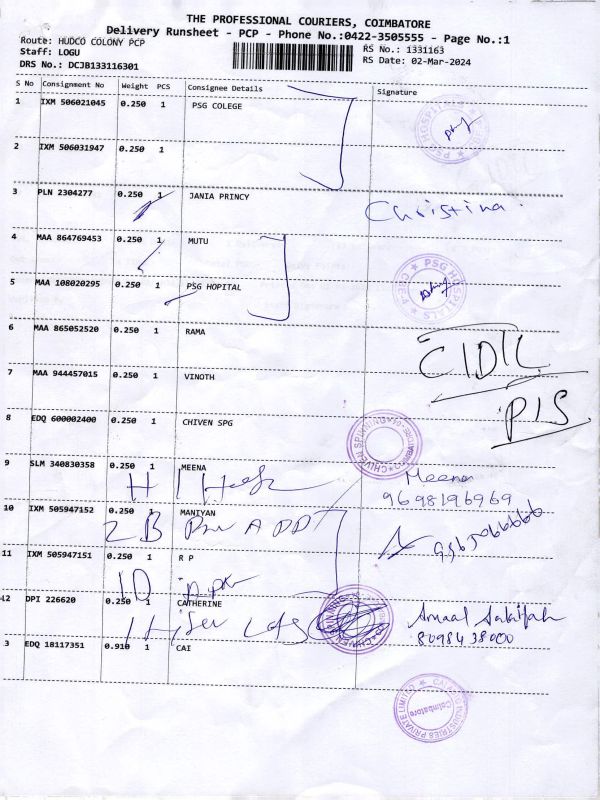 THE PROFESSIONAL COURIERS, COIMBATORE
Delivery Runsheet - PCP - Phone No.:0422-3505555 - Page No.:1
Route: HUDCO COLONY PCP
RS No.: 1331163
Staff: LOGU
RS Date: 02-Mar-2024
DRS No.: DCJB133116301
S No Consignment No Weight PCS Consignee Details Signature
1 IXM 506021045 0.250 1 PSG COLEGE
PSG HOSPITALS
2 IXM 506031947 0.250 1
3 PLN 2304277 0.250 1 JANIA PRINCY
Christina.
4 MAA 864769453 0.250 1 MUTU
5 MAA 108020295 0.250 1 PSG HOPITAL
PSG HOSPITALS
6 MAA 865052520 0.250 1 RAMA
7 MAA 944457015 0.250 1 VINOTH
8 EDQ 600002400 0.250 1 CHIVEN SPG
CHIVEN SPINNING
9 SLM 340830358 0.250 1 MEENA
Meena
9698196969
10 IXM 505947152 0.250 1 MANIYAN
2B
11 IXM 505947151 0.250 1 R P
1D
12 DPI 226620 0.250 1 CATHERINE
8098438000
3 EDQ 18117351 0.910 1 CAI
INDUSTRIES PRIVATE LIMITED
Coimbatore